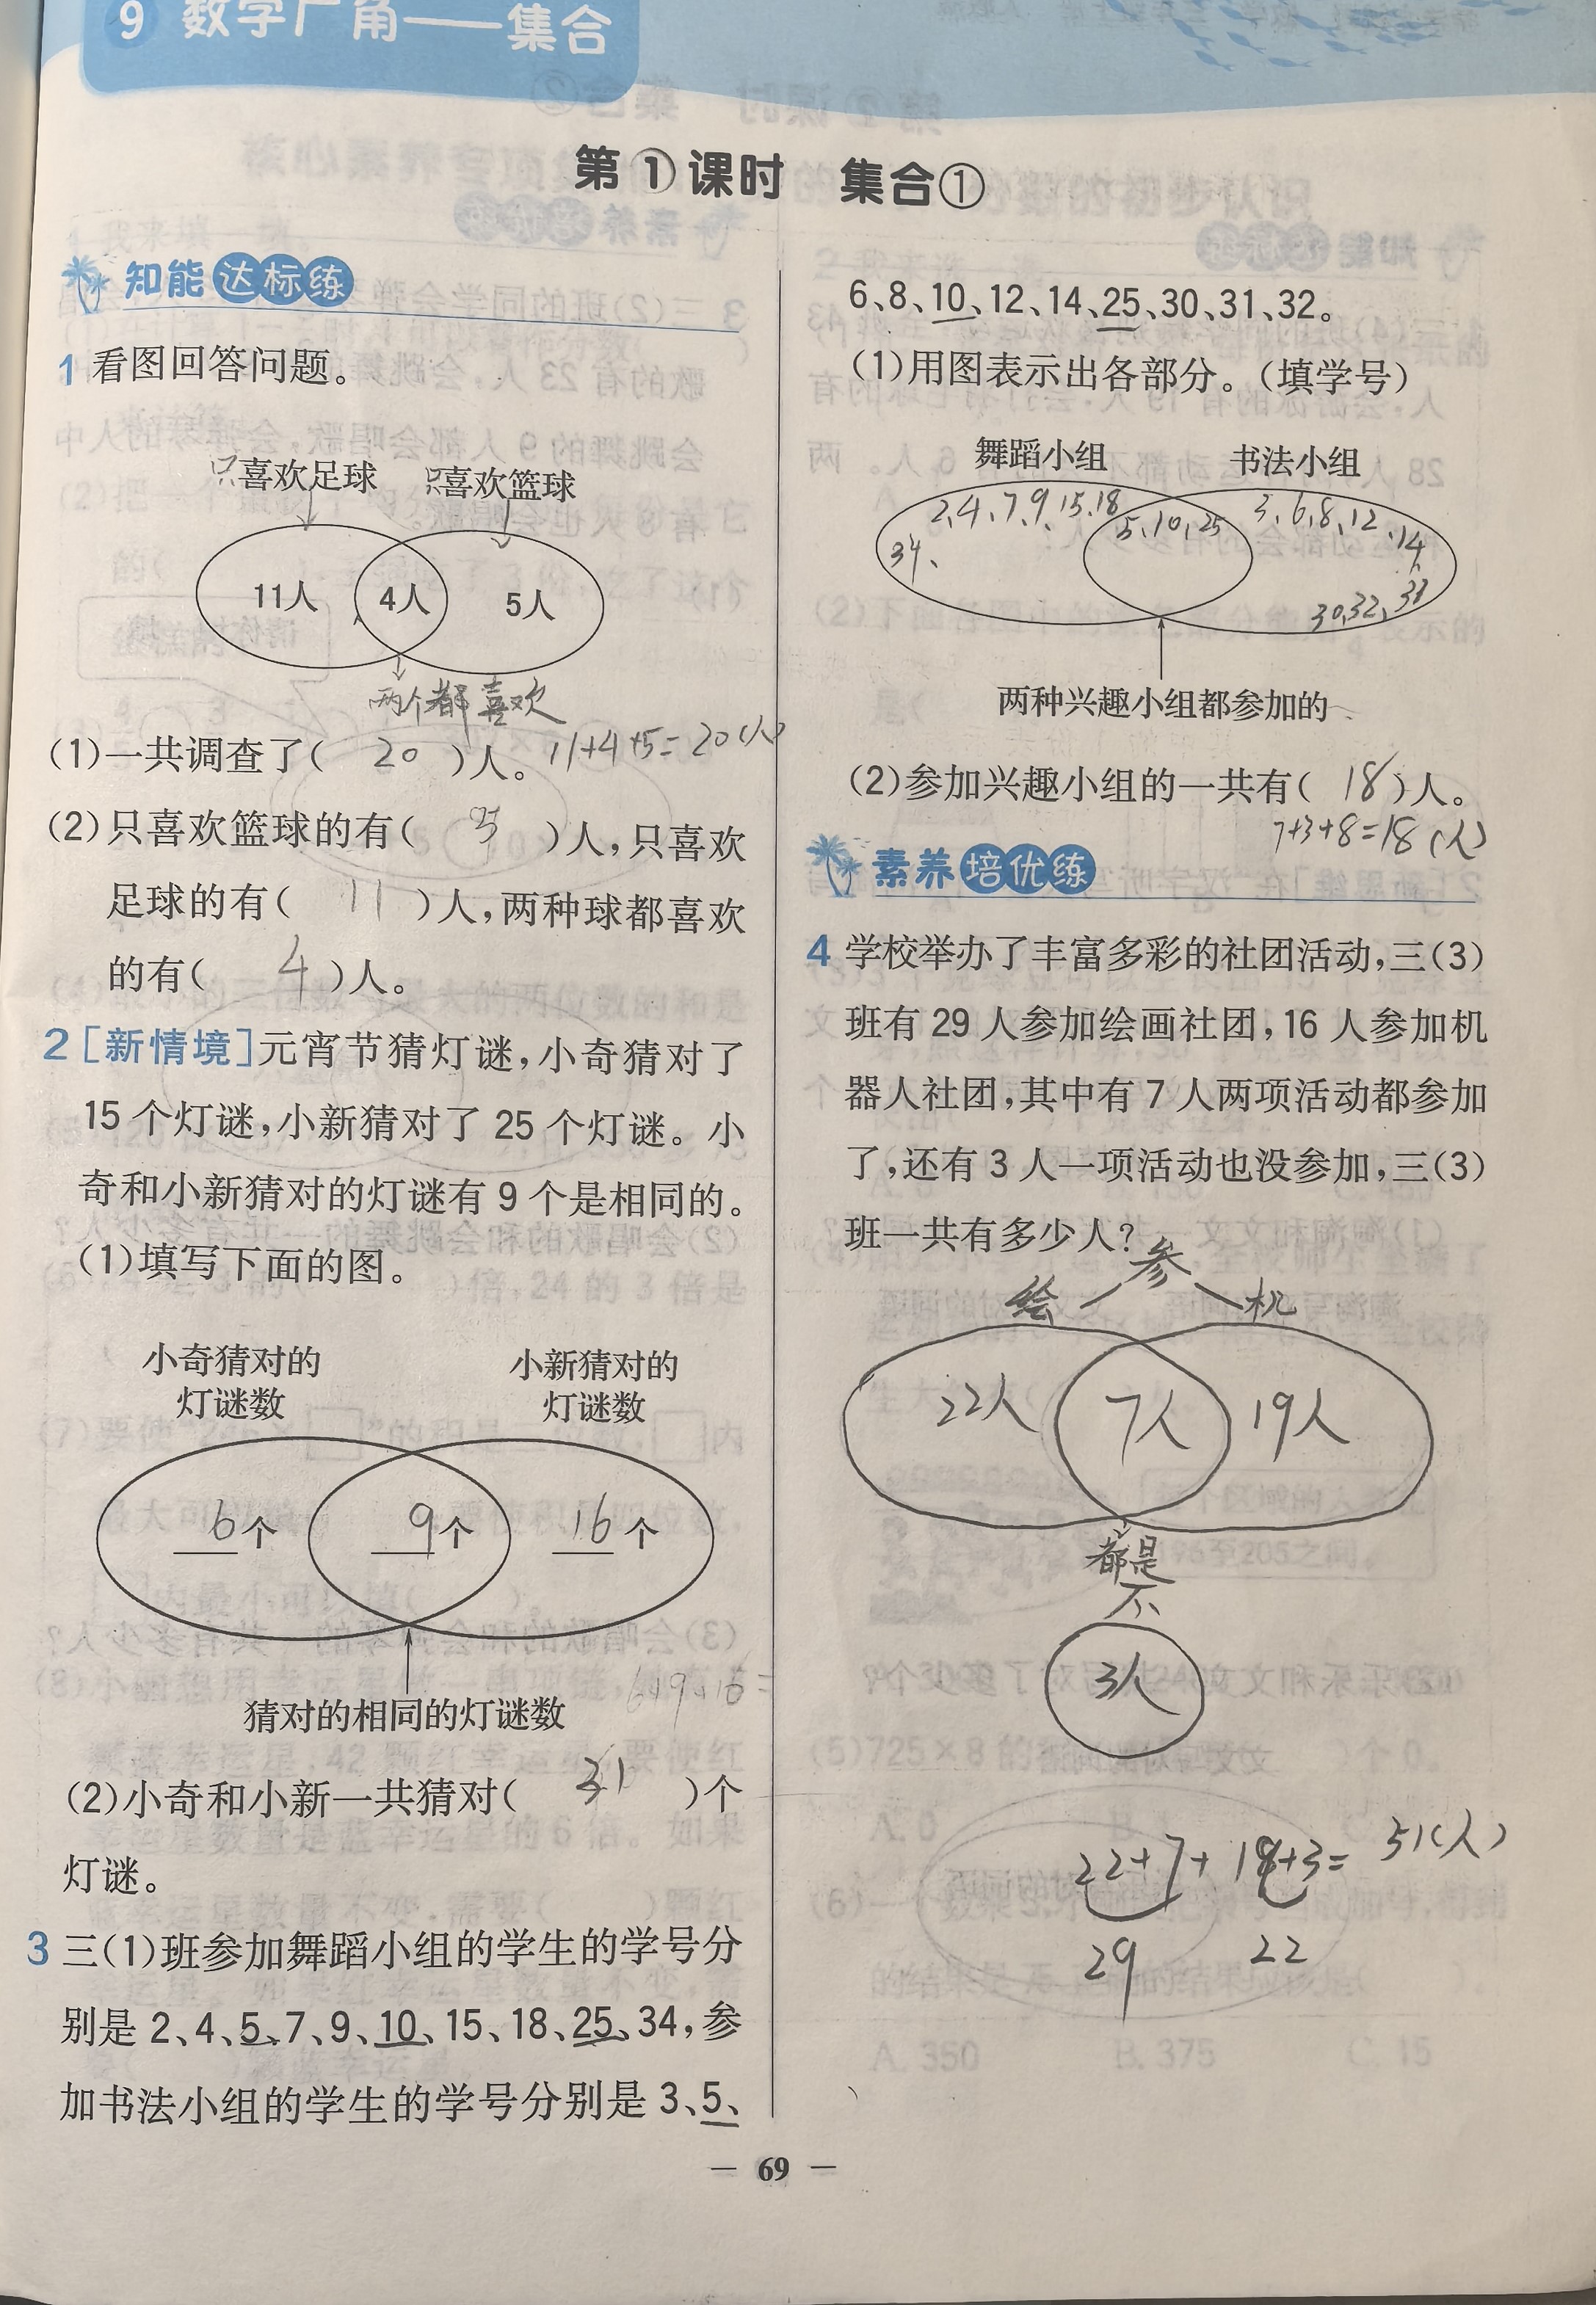 9 数学广角——集合
第1课时 集合①
知能达标练
1 看图回答问题。
只喜欢足球 只喜欢篮球
11人 4人 5人
两个都喜欢
(1)一共调查了( 20 )人。 11+4+5=20(人)
(2)只喜欢篮球的有( 5 )人,只喜欢
足球的有( 11 )人,两种球都喜欢
的有( 4 )人。
2 [新情境]元宵节猜灯谜,小奇猜对了
15个灯谜,小新猜对了25个灯谜。小
奇和小新猜对的灯谜有9个是相同的。
(1)填写下面的图。
小奇猜对的 小新猜对的
灯谜数 灯谜数
6个 9个 16个
猜对的相同的灯谜数
6+9+16=
(2)小奇和小新一共猜对( 31 )个
灯谜。
3 三(1)班参加舞蹈小组的学生的学号分
别是2、4、5、7、9、10、15、18、25、34,参
加书法小组的学生的学号分别是3、5、
6、8、10、12、14、25、30、31、32。
(1)用图表示出各部分。(填学号)
舞蹈小组 书法小组
2、4、7、9、15、18 5、10、25 3、6、8、12、14
34、
30、32、31
两种兴趣小组都参加的
(2)参加兴趣小组的一共有( 18 )人。
7+3+8=18(人)
素养培优练
4 学校举办了丰富多彩的社团活动,三(3)
班有29人参加绘画社团,16人参加机
器人社团,其中有7人两项活动都参加
了,还有3人一项活动也没参加,三(3)
班一共有多少人?
参
绘 机
22人 7人 19人
都是
不
3人
22+7+19+3=51(人)
29 22
— 69 —